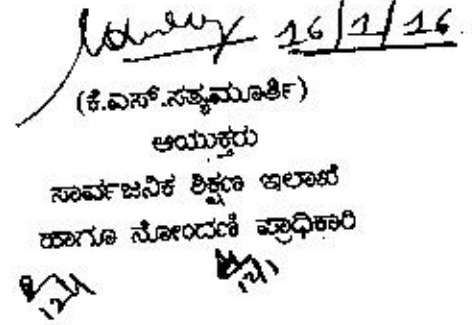 16/1/16
(ಕೆ.ಎಸ್.ಸತ್ಯಮೂರ್ತಿ)
ಆಯುಕ್ತರು
ಸಾರ್ವಜನಿಕ ಶಿಕ್ಷಣ ಇಲಾಖೆ
ಹಾಗೂ ನೋಂದಣಿ ಪ್ರಾಧಿಕಾರಿ